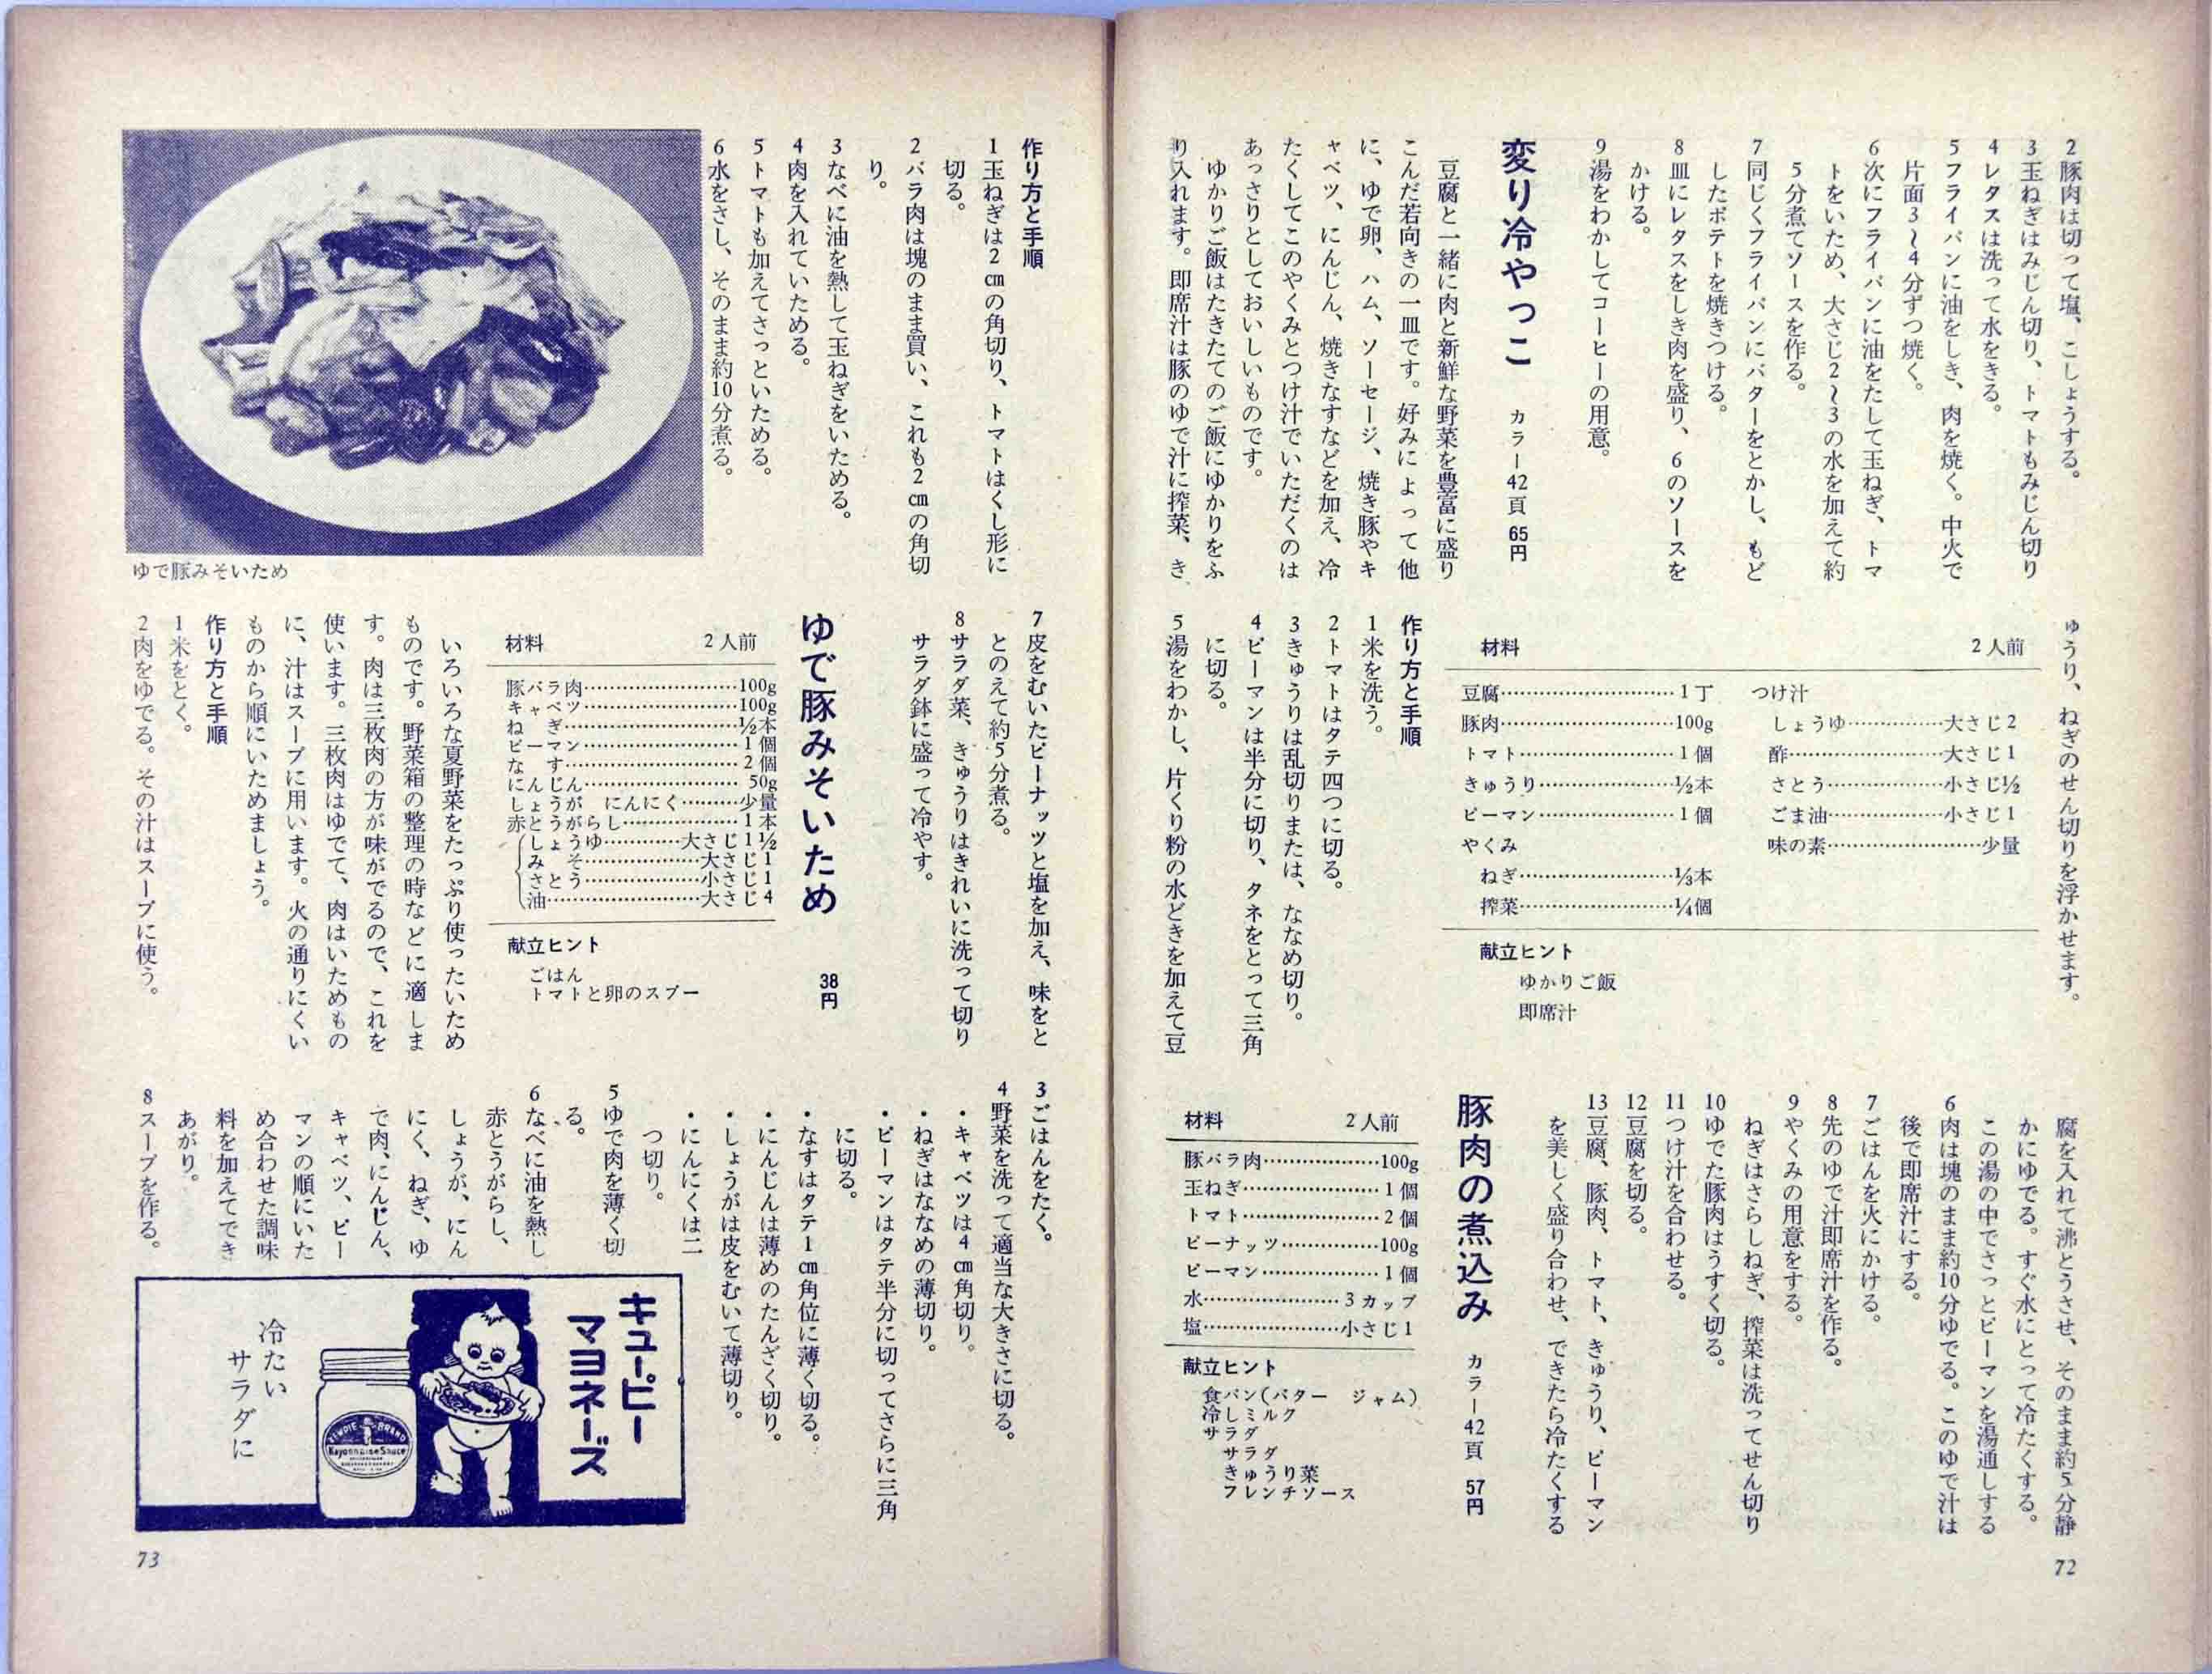 2豚肉は切って塩、こしょうする。
3玉ねぎはみじん切り、トマトもみじん切り
4レタスは洗って水をきる。
5フライパンに油をしき、肉を焼く。中火で
片面3〜4分ずつ焼く。
6次にフライパンに油をたして玉ねぎ、トマ
トをいため、大さじ2〜3の水を加えて約
5分煮てソースを作る。
7同じくフライパンにバターをとかし、もど
したポテトを焼きつける。
8皿にレタスをしき肉を盛り、6のソースを
かける。
9湯をわかしてコーヒーの用意。
変り冷やっこ カラー42頁 65円
豆腐と一緒に肉と新鮮な野菜を豊富に盛り
こんだ若向きの一皿です。好みによって他
に、ゆで卵、ハム、ソーセージ、焼き豚やキ
ャベツ、にんじん、焼きなすなどを加え、冷
たくしてこのやくみとつけ汁でいただくのは
あっさりとしておいしいものです。
ゆかりご飯はたきたてのご飯にゆかりをふ
り入れます。即席汁は豚のゆで汁に搾菜、き
ゅうり、ねぎのせん切りを浮かせます。
材料 2人前
豆腐…………1丁
豚肉…………100g
トマト…………1個
きゅうり…………½本
ピーマン…………1個
やくみ
ねぎ…………⅓本
搾菜…………¼個
つけ汁
しょうゆ…………大さじ2
酢…………大さじ1
さとう…………小さじ½
ごま油…………小さじ1
味の素…………少量
献立ヒント
ゆかりご飯
即席汁
作り方と手順
1米を洗う。
2トマトはタテ四つに切る。
3きゅうりは乱切りまたは、ななめ切り。
4ピーマンは半分に切り、タネをとって三角
に切る。
5湯をわかし、片くり粉の水どきを加えて豆
腐を入れて沸とうさせ、そのまま約5分静
かにゆでる。すぐ水にとって冷たくする。
この湯の中でさっとピーマンを湯通しする
6肉は塊のまま約10分ゆでる。このゆで汁は
後で即席汁にする。
7ごはんを火にかける。
8先のゆで汁即席汁を作る。
9やくみの用意をする。
ねぎはさらしねぎ、搾菜は洗ってせん切り
10ゆでた豚肉はうすく切る。
11つけ汁を合わせる。
12豆腐を切る。
13豆腐、豚肉、トマト、きゅうり、ピーマン
を美しく盛り合わせ、できたら冷たくする
豚肉の煮込み カラー42頁 57円
材料 2人前
豚バラ肉…………100g
玉ねぎ…………1個
トマト…………2個
ピーナッツ…………100g
ピーマン…………1個
水…………3カップ
塩…………小さじ1
献立ヒント
食パン(バター ジャム)
冷しミルク
サラダ
サラダ
きゅうり菜
フレンチソース
72
作り方と手順
1玉ねぎは2㎝の角切り、トマトはくし形に
切る。
2バラ肉は塊のまま買い、これも2㎝の角切
り。
3なべに油を熱して玉ねぎをいためる。
4肉を入れていためる。
5トマトも加えてさっといためる。
6水をさし、そのまま約10分煮る。
ゆで豚みそいため
7皮をむいたピーナッツと塩を加え、味をと
とのえて約5分煮る。
8サラダ菜、きゅうりはきれいに洗って切り
サラダ鉢に盛って冷やす。
ゆで豚みそいため 38円
材料 2人前
豚バラ肉…………100g
キャベツ…………100g
ねぎ…………½本
ピーマン…………1個
なす…………2個
にんじん…………50g
しょうが にんにく…………少量
赤とうがらし…………1本
しょうゆ…………大さじ1½
みそ…………大さじ1
さとう…………小さじ1
油…………大さじ4
献立ヒント
ごはん
トマトと卵のスープ
いろいろな夏野菜をたっぷり使ったいため
ものです。野菜箱の整理の時などに適しま
す。肉は三枚肉の方が味がでるので、これを
使います。三枚肉はゆでて、肉はいためもの
に、汁はスープに用います。火の通りにくい
ものから順にいためましょう。
作り方と手順
1米をとく。
2肉をゆでる。その汁はスープに使う。
3ごはんをたく。
4野菜を洗って適当な大きさに切る。
・キャベツは4㎝角切り。
・ねぎはななめの薄切り。
・ピーマンはタテ半分に切ってさらに三角
に切る。
・なすはタテ1㎝角位に薄く切る。
・にんじんは薄めのたんざく切り。
・しょうがは皮をむいて薄切り。
・にんにくは二
つ切り。
5ゆで肉を薄く切
る。
6なべに油を熱し
赤とうがらし、
しょうが、にん
にく、ねぎ、ゆ
で肉、にんじん、
キャベツ、ピー
マンの順にいた
め合わせた調味
料を加えてでき
あがり。
8スープを作る。
キユーピー
マヨネーズ
KEWPIE BRAND
Mayonnaise Sauce
冷たい
サラダに
73